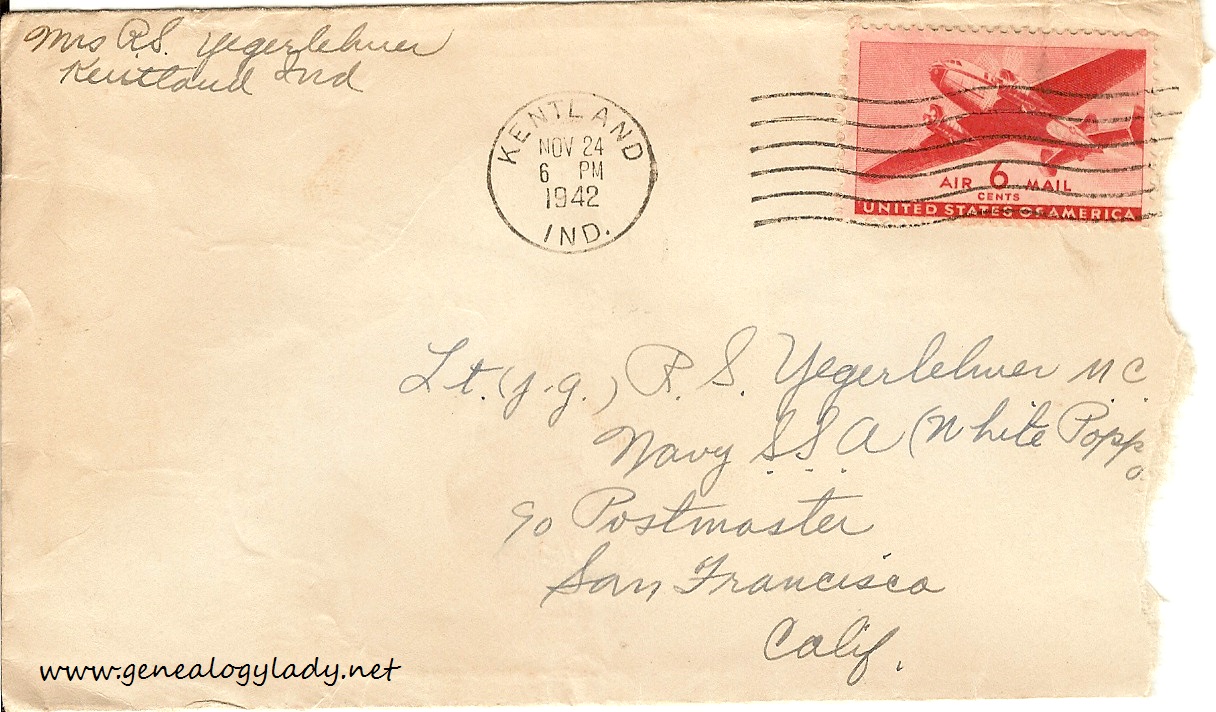 Mrs R.S. Yegerlehner
Kentland Ind
KENTLAND
NOV 24
6 PM
1942
IND.
AIR 6 MAIL
CENTS
UNITED STATES OF AMERICA
Lt. (j.g.) R. S. Yegerlehner M.C.
Navy S S A (White Popp
c/o Postmaster
San Francisco
Calif.
www.genealogylady.net